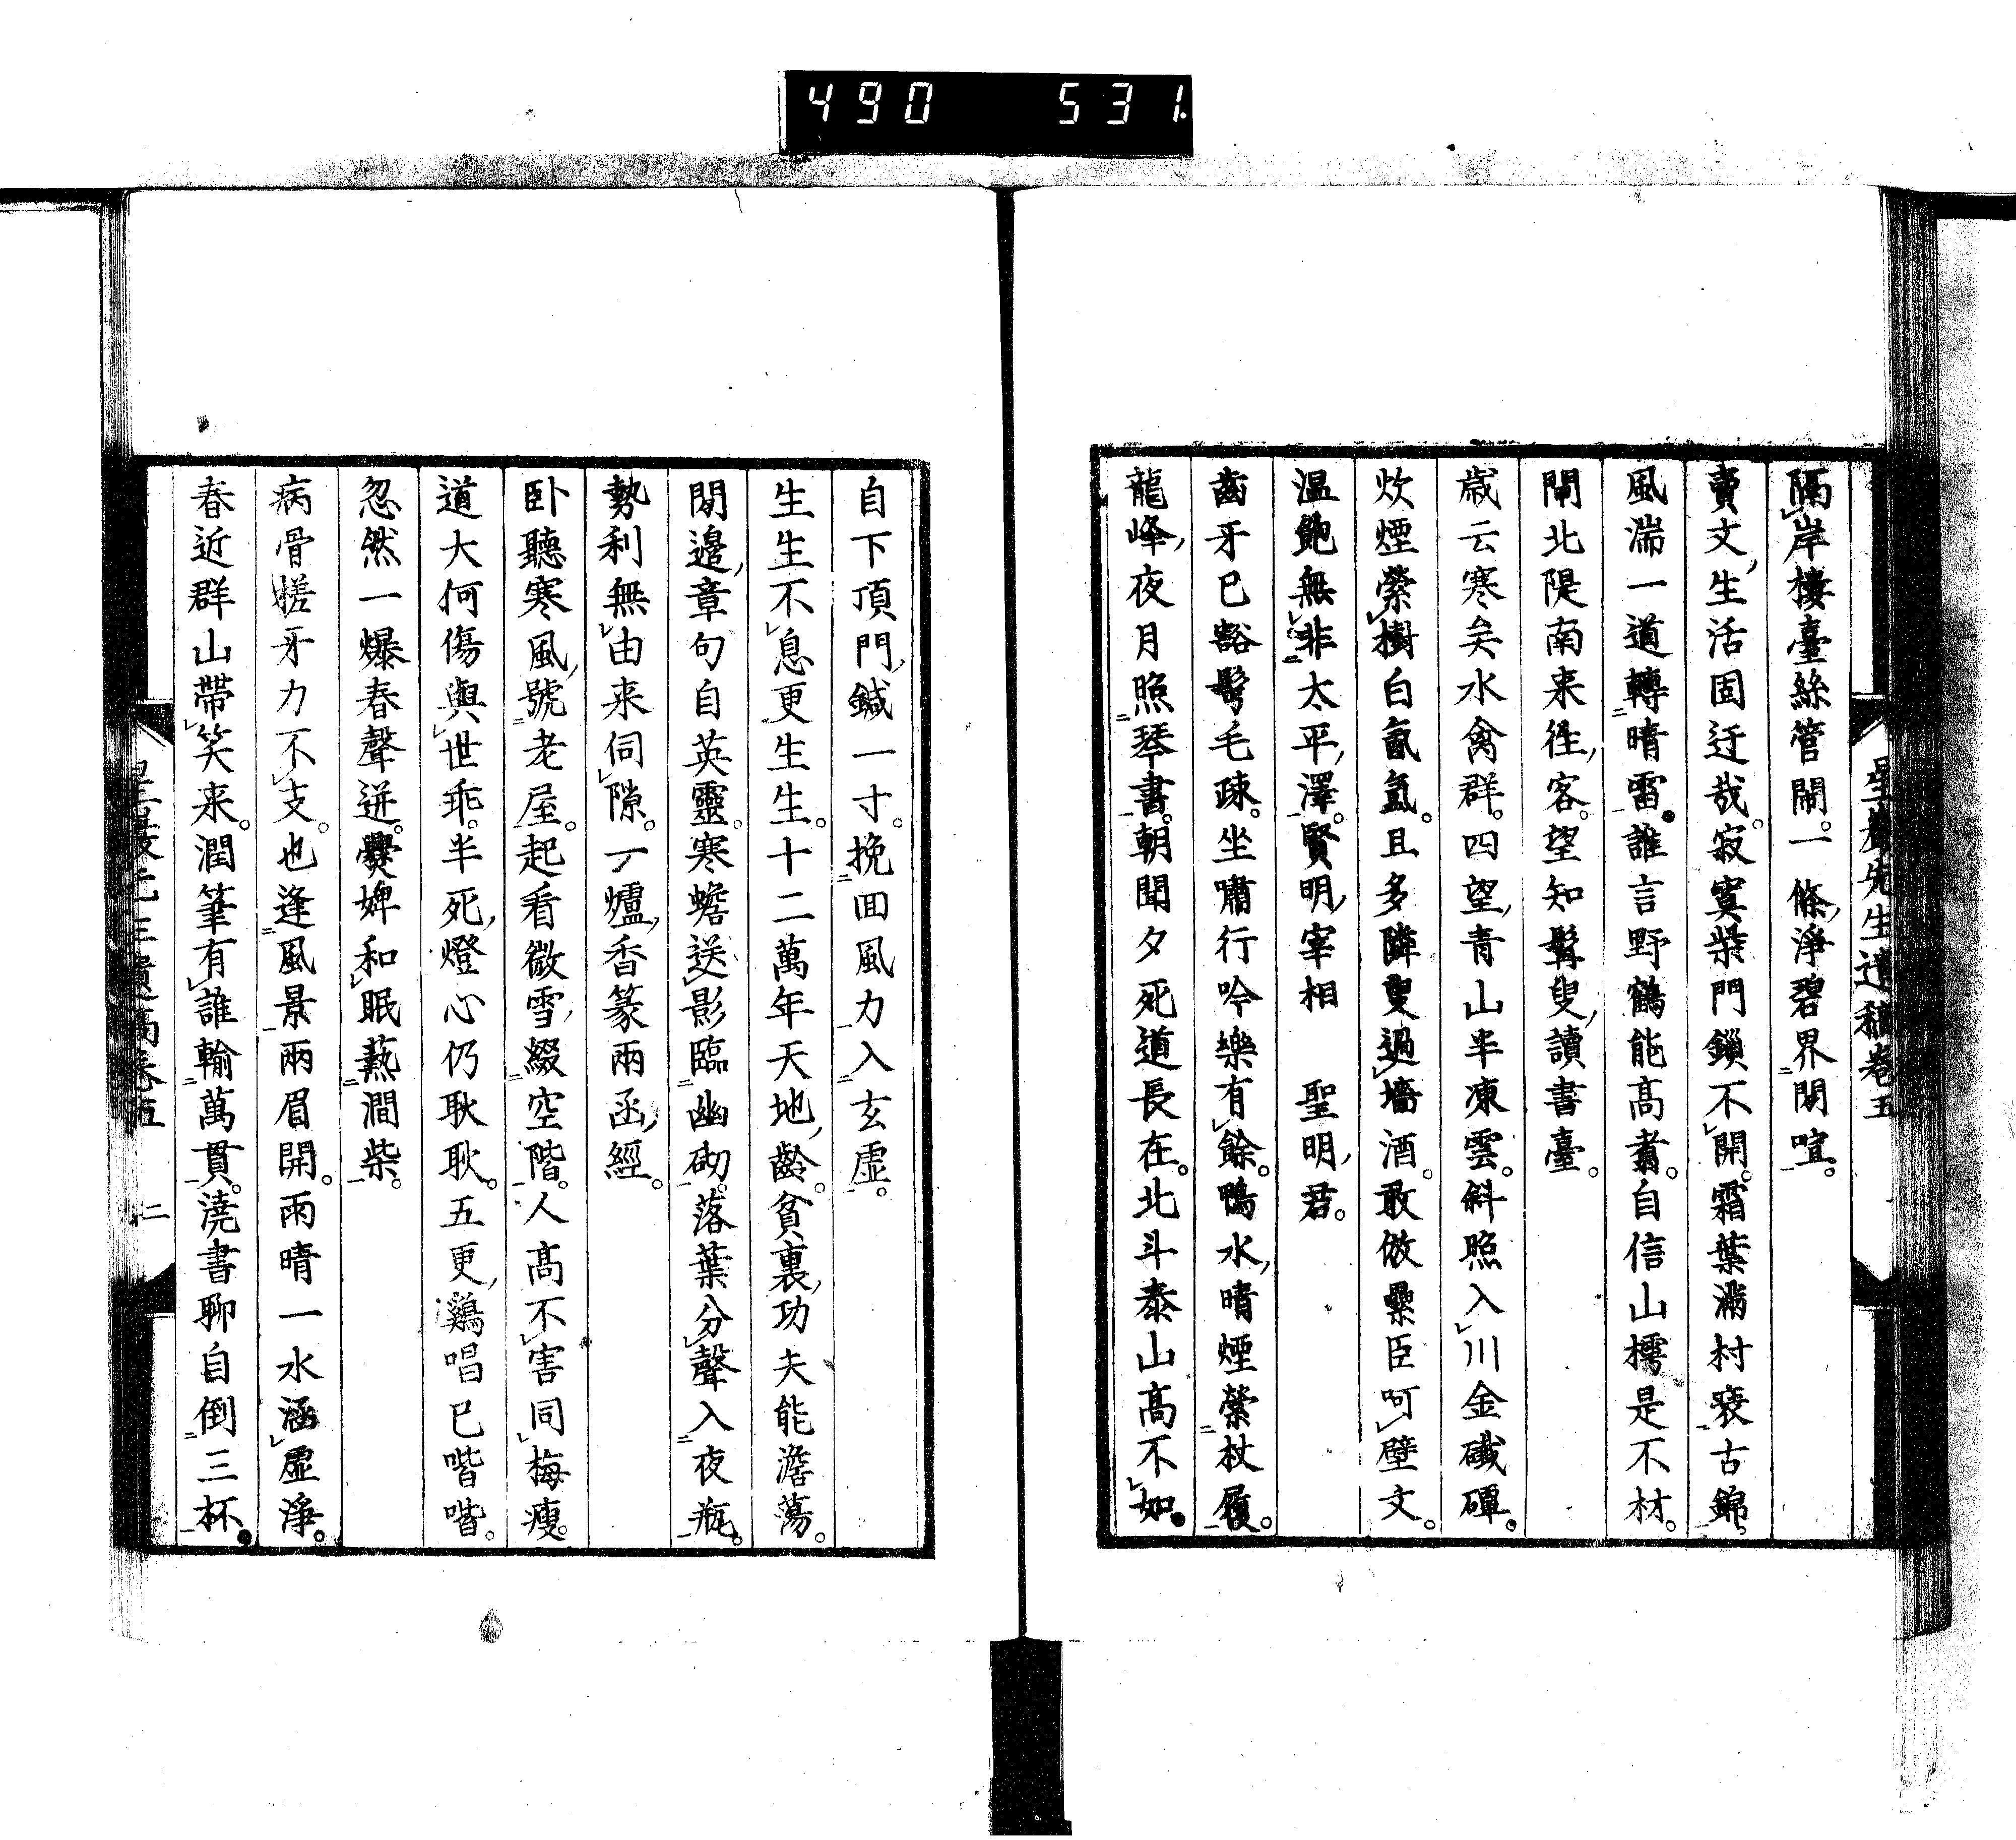 490 531
星巖先生遺稿卷五
隔岸樓臺絲管鬧。一條淨碧界閑喧。
賣文生活固迂哉。寂寞柴門鎖不開。霜葉滿村裝古錦。
風湍一道轉晴雷。誰言野鶴能高翥。自信山樗是不材。
閘北隄南来往客。望知髯叟讀書臺。
歳云寒矣水禽群。四望青山半凍雲。斜照入川金磩磹。
炊煙縈樹白氤氳。且多隣叟過墻酒。敢倣纍臣呵壁文。
溫飽無非太平澤。賢明宰相 聖明君。
齒牙已豁鬢毛疎。坐嘯行吟樂有餘。鴨水晴煙縈杖屨。
龍峰夜月照琴書。朝聞夕死道長在。北斗泰山高不如。
自下頂門鍼一寸。挽回風力入玄虛。
生生不息更生生。十二萬年天地齡。貧裏功夫能澹蕩。
閑邊章句自英靈。寒蟾送影臨幽砌。落葉分聲入夜瓶。
勢利無由来伺隙。一爐香篆兩函經。
卧聽寒風號老屋。起看微雪綴空階。人高不害同梅瘦。
道大何傷與世乖。半死燈心仍耿耿。五更鷄唱已喈喈。
忽然一爆春聲迸。爨婢和眠爇澗柴。
病骨槎牙力不支。也逢風景兩眉開。雨晴一水涵虛淨。
春近群山帶笑来。潤筆有誰輸萬貫。澆書聊自倒三杯。
星巖先生遺稿卷五 二